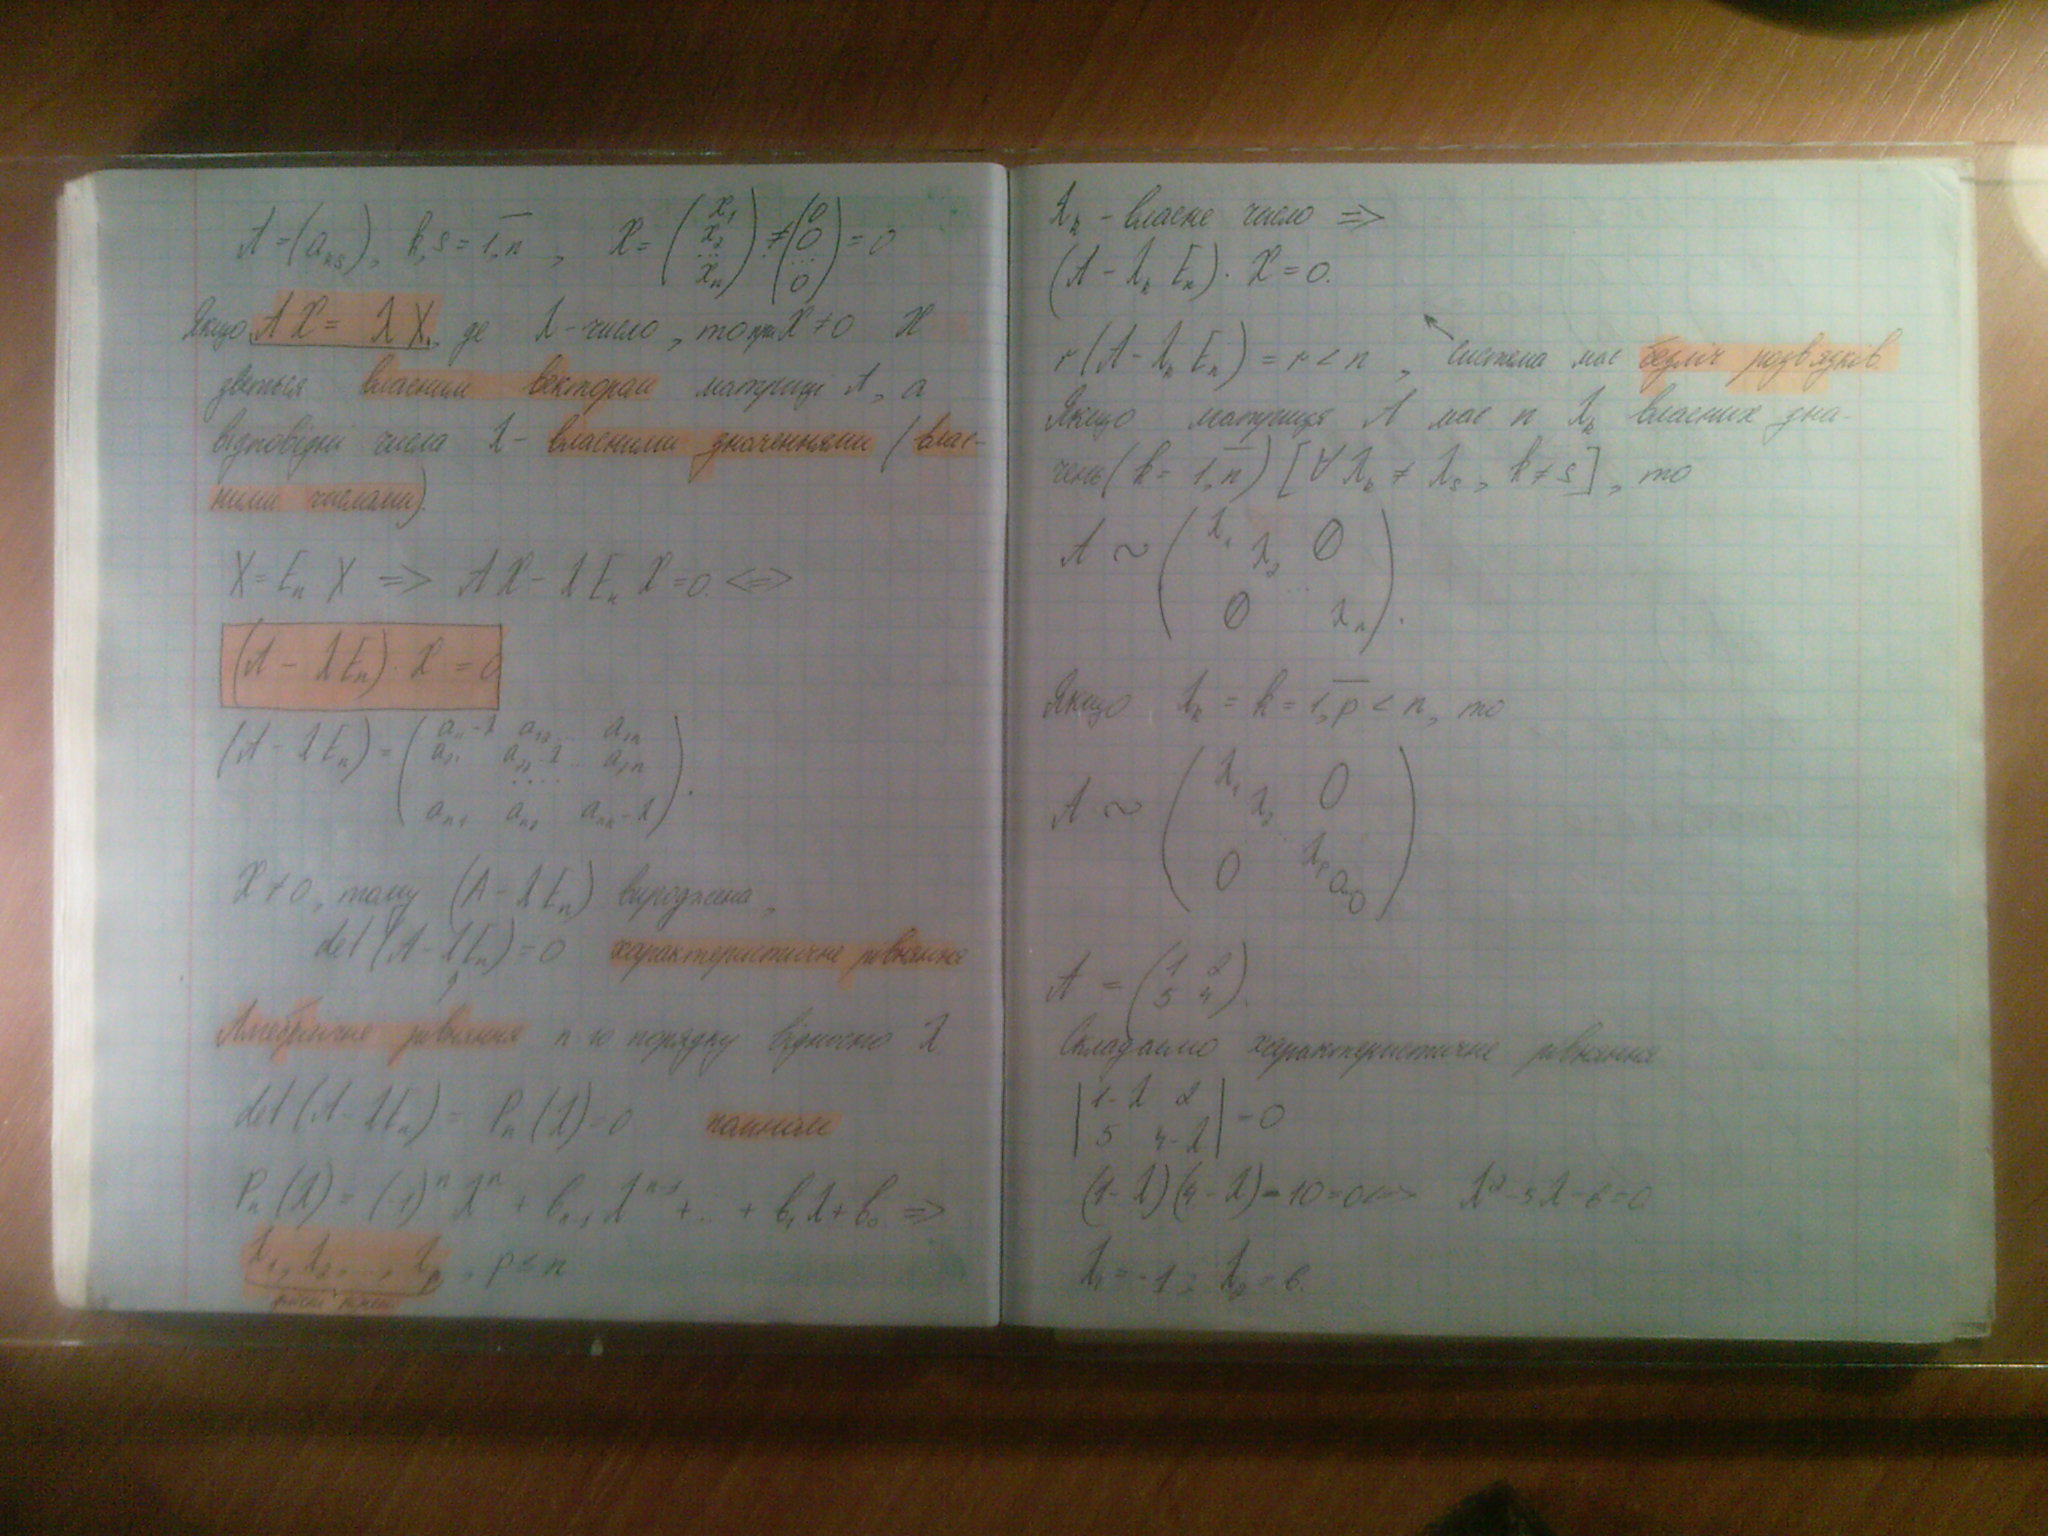 A = (a_ks), k,s = 1,n̅ , X = (x₁ x₂ ... xₙ) ≠ (0 0 ... 0) = 0
Якщо AX = λX, де λ - число, то при X ≠ 0 X
зветься власним вектором матриці A, а
відповідні числа λ - власними значеннями (влас-
ними числами).
X = Eₙ X => AX - λEₙ X = 0. <=>
(A - λEₙ) · X = 0
(A - λEₙ) = (a₁₁-λ a₁₂ ... a₁ₙ
a₂₁ a₂₂-λ ... a₂ₙ
.....
aₙ₁ aₙ₂ aₙₙ-λ).
X ≠ 0, тому (A - λEₙ) вироджена,
det(A - λEₙ) = 0 характеристичне рівняння
Алгебраїчне рівняння n-го порядку відносно λ
det(A - λEₙ) = Pₙ(λ) = 0 поліном
Pₙ(λ) = (-1)ⁿ λⁿ + bₙ₋₁ λⁿ⁻¹ + ... + b₁λ + b₀ =>
λ₁, λ₂, ..., λₚ, p ≤ n
λₖ - власне число =>
(A - λₖ Eₙ) · X = 0.
r(A - λₖ Eₙ) = r < n , система має безліч розв'язків.
Якщо матриця A має n λₖ власних зна-
чень (k = 1,n̅) [∀ λₖ ≠ λₛ, k ≠ s], то
A ~ (λ₁ 0
λ₂
...
0 λₙ).
Якщо λₖ = k = 1,p̅ < n, то
A ~ (λ₁ 0
λ₂
...
0 λₚ
0
0)
A = (1 2
5 4).
Складаємо характеристичне рівняння
|1-λ 2
5 4-λ| = 0
(1-λ)(4-λ) - 10 = 0 <=> λ² - 5λ - 6 = 0
λ₁ = -1 ; λ₂ = 6.